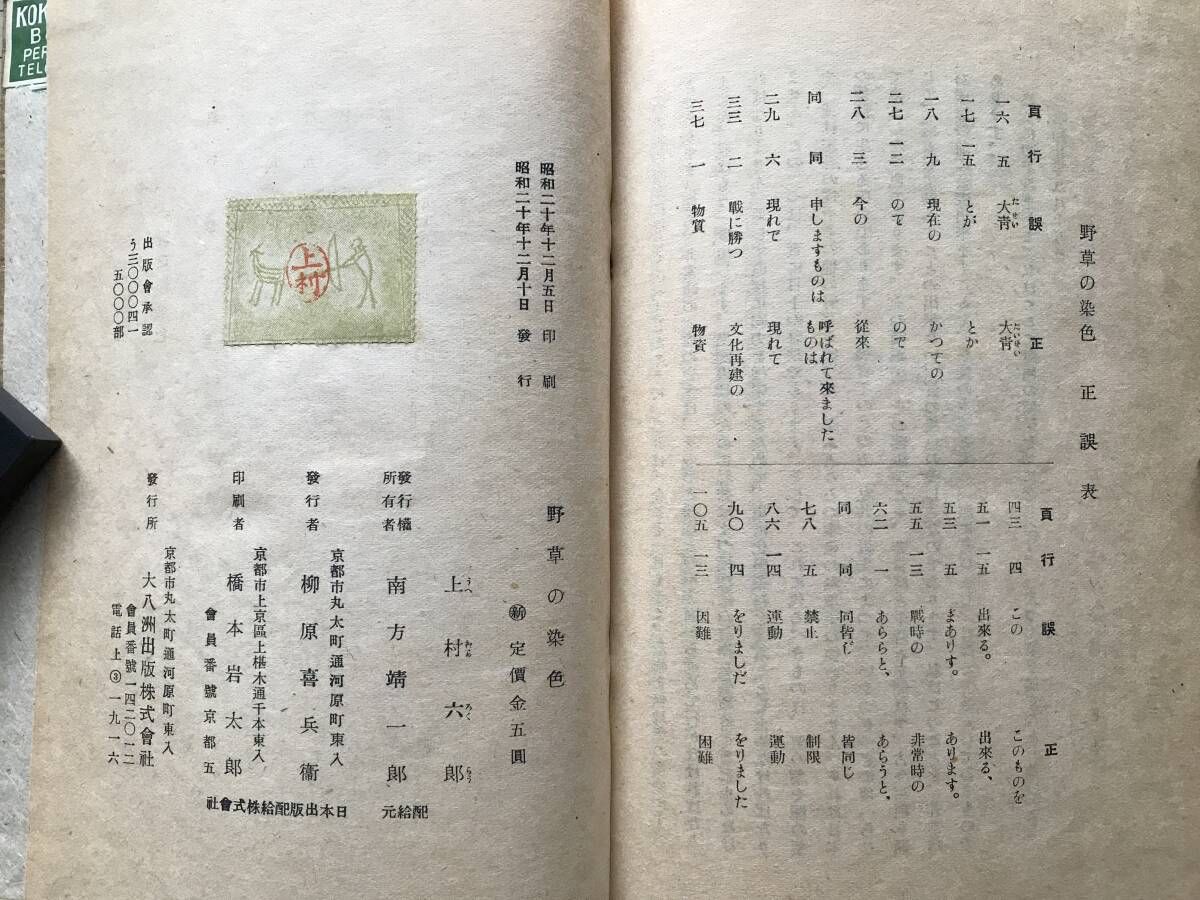 野草の染色 正誤表
頁 行 誤 正
一六 五 大靑(たせい) 大靑(たいせい)
一七 一五 とが とか
一八 九 現在の かつての
二七 一二 のて ので
二八 三 今の 從來
同 同 申しますものは 呼ばれて來ましたものは
二九 六 現れで 現れて
三三 二 戰に勝つ 文化再建の
三七 一 物質 物資
頁 行 誤 正
四三 四 この このものを
五一 一五 出來る。 出來る、
五三 五 まありす。 あります。
五五 一三 戰時の 非常時の
六二 一 あららと、 あらうと、
同 同 同皆じ 皆同じ
七八 五 禁止 制限
八六 一四 連動 運動
九〇 四 をりましだ をりました
一〇五 一三 因難 困難
昭和二十年十二月五日 印刷
昭和二十年十二月十日 發行
上村
出版會承認
う三〇〇〇四一
五〇〇〇部
野草の染色
新 定價金五圓
上村六郎
發行權所有者 南方靖一郎
京都市丸太町通河原町東入
發行者 柳原喜兵衞
京都市上京區上椹木通千本東入
印刷者 橋本岩太郎
會員番號京都五
京都市丸太町通河原町東入
發行所 大八洲出版株式會社
會員番號一四二〇一二
電話上③一九一六
配給元 日本出版配給株式會社
KOK
B
PER
TEL